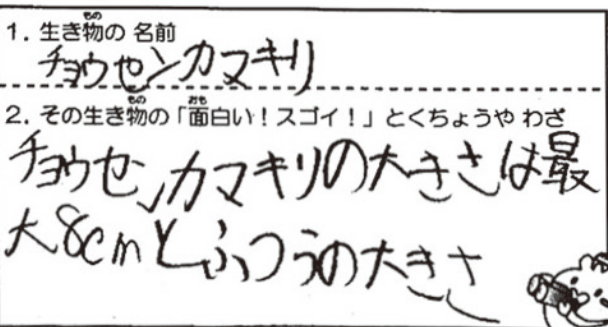 1. 生き物の 名前
チョウセンカマキリ
2. その生き物の「面白い！スゴイ！」とくちょうや わざ
チョウセンカマキリの大きさは最
大8cmとふつうの大きさ